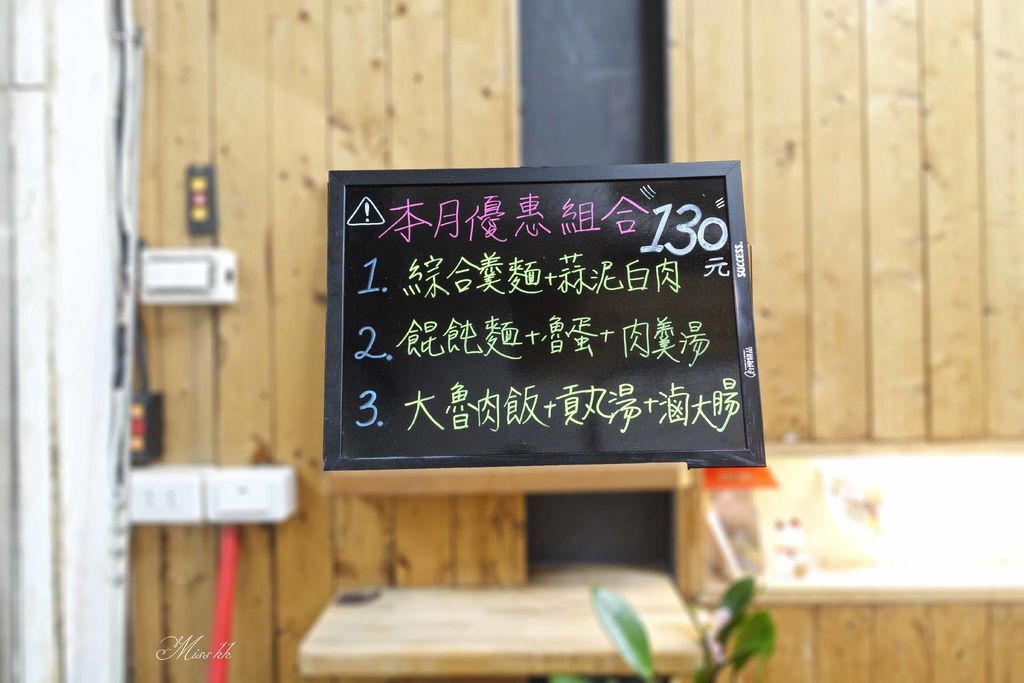 本月優惠組合 130元
1. 綜合羹麵+蒜泥白肉
2. 餛飩麵+魯蛋+肉羹湯
3. 大魯肉飯+貢丸湯+滷大腸
SUCCESS.
Miss kk